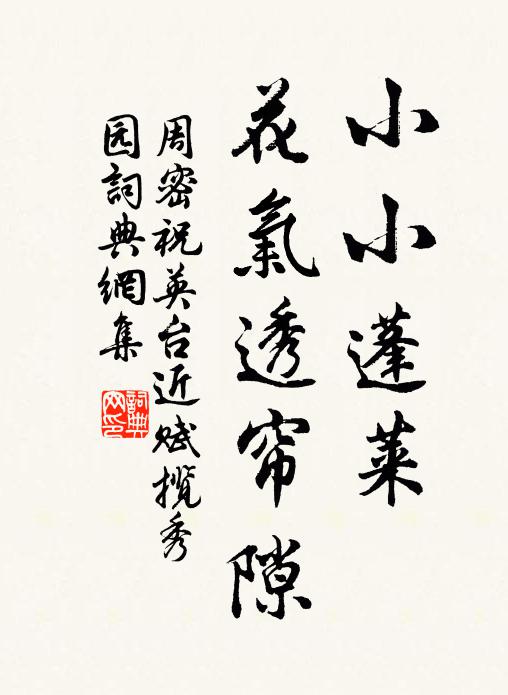 小小蓬莱
花氣透帘隙
周密祝英台近赋揽秀
园詞典網集
詞典
网印